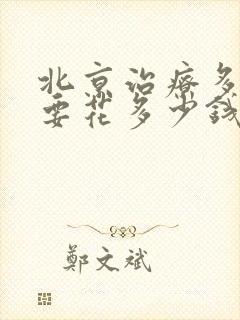 北京治疗多
要花多少钱
鄭文斌